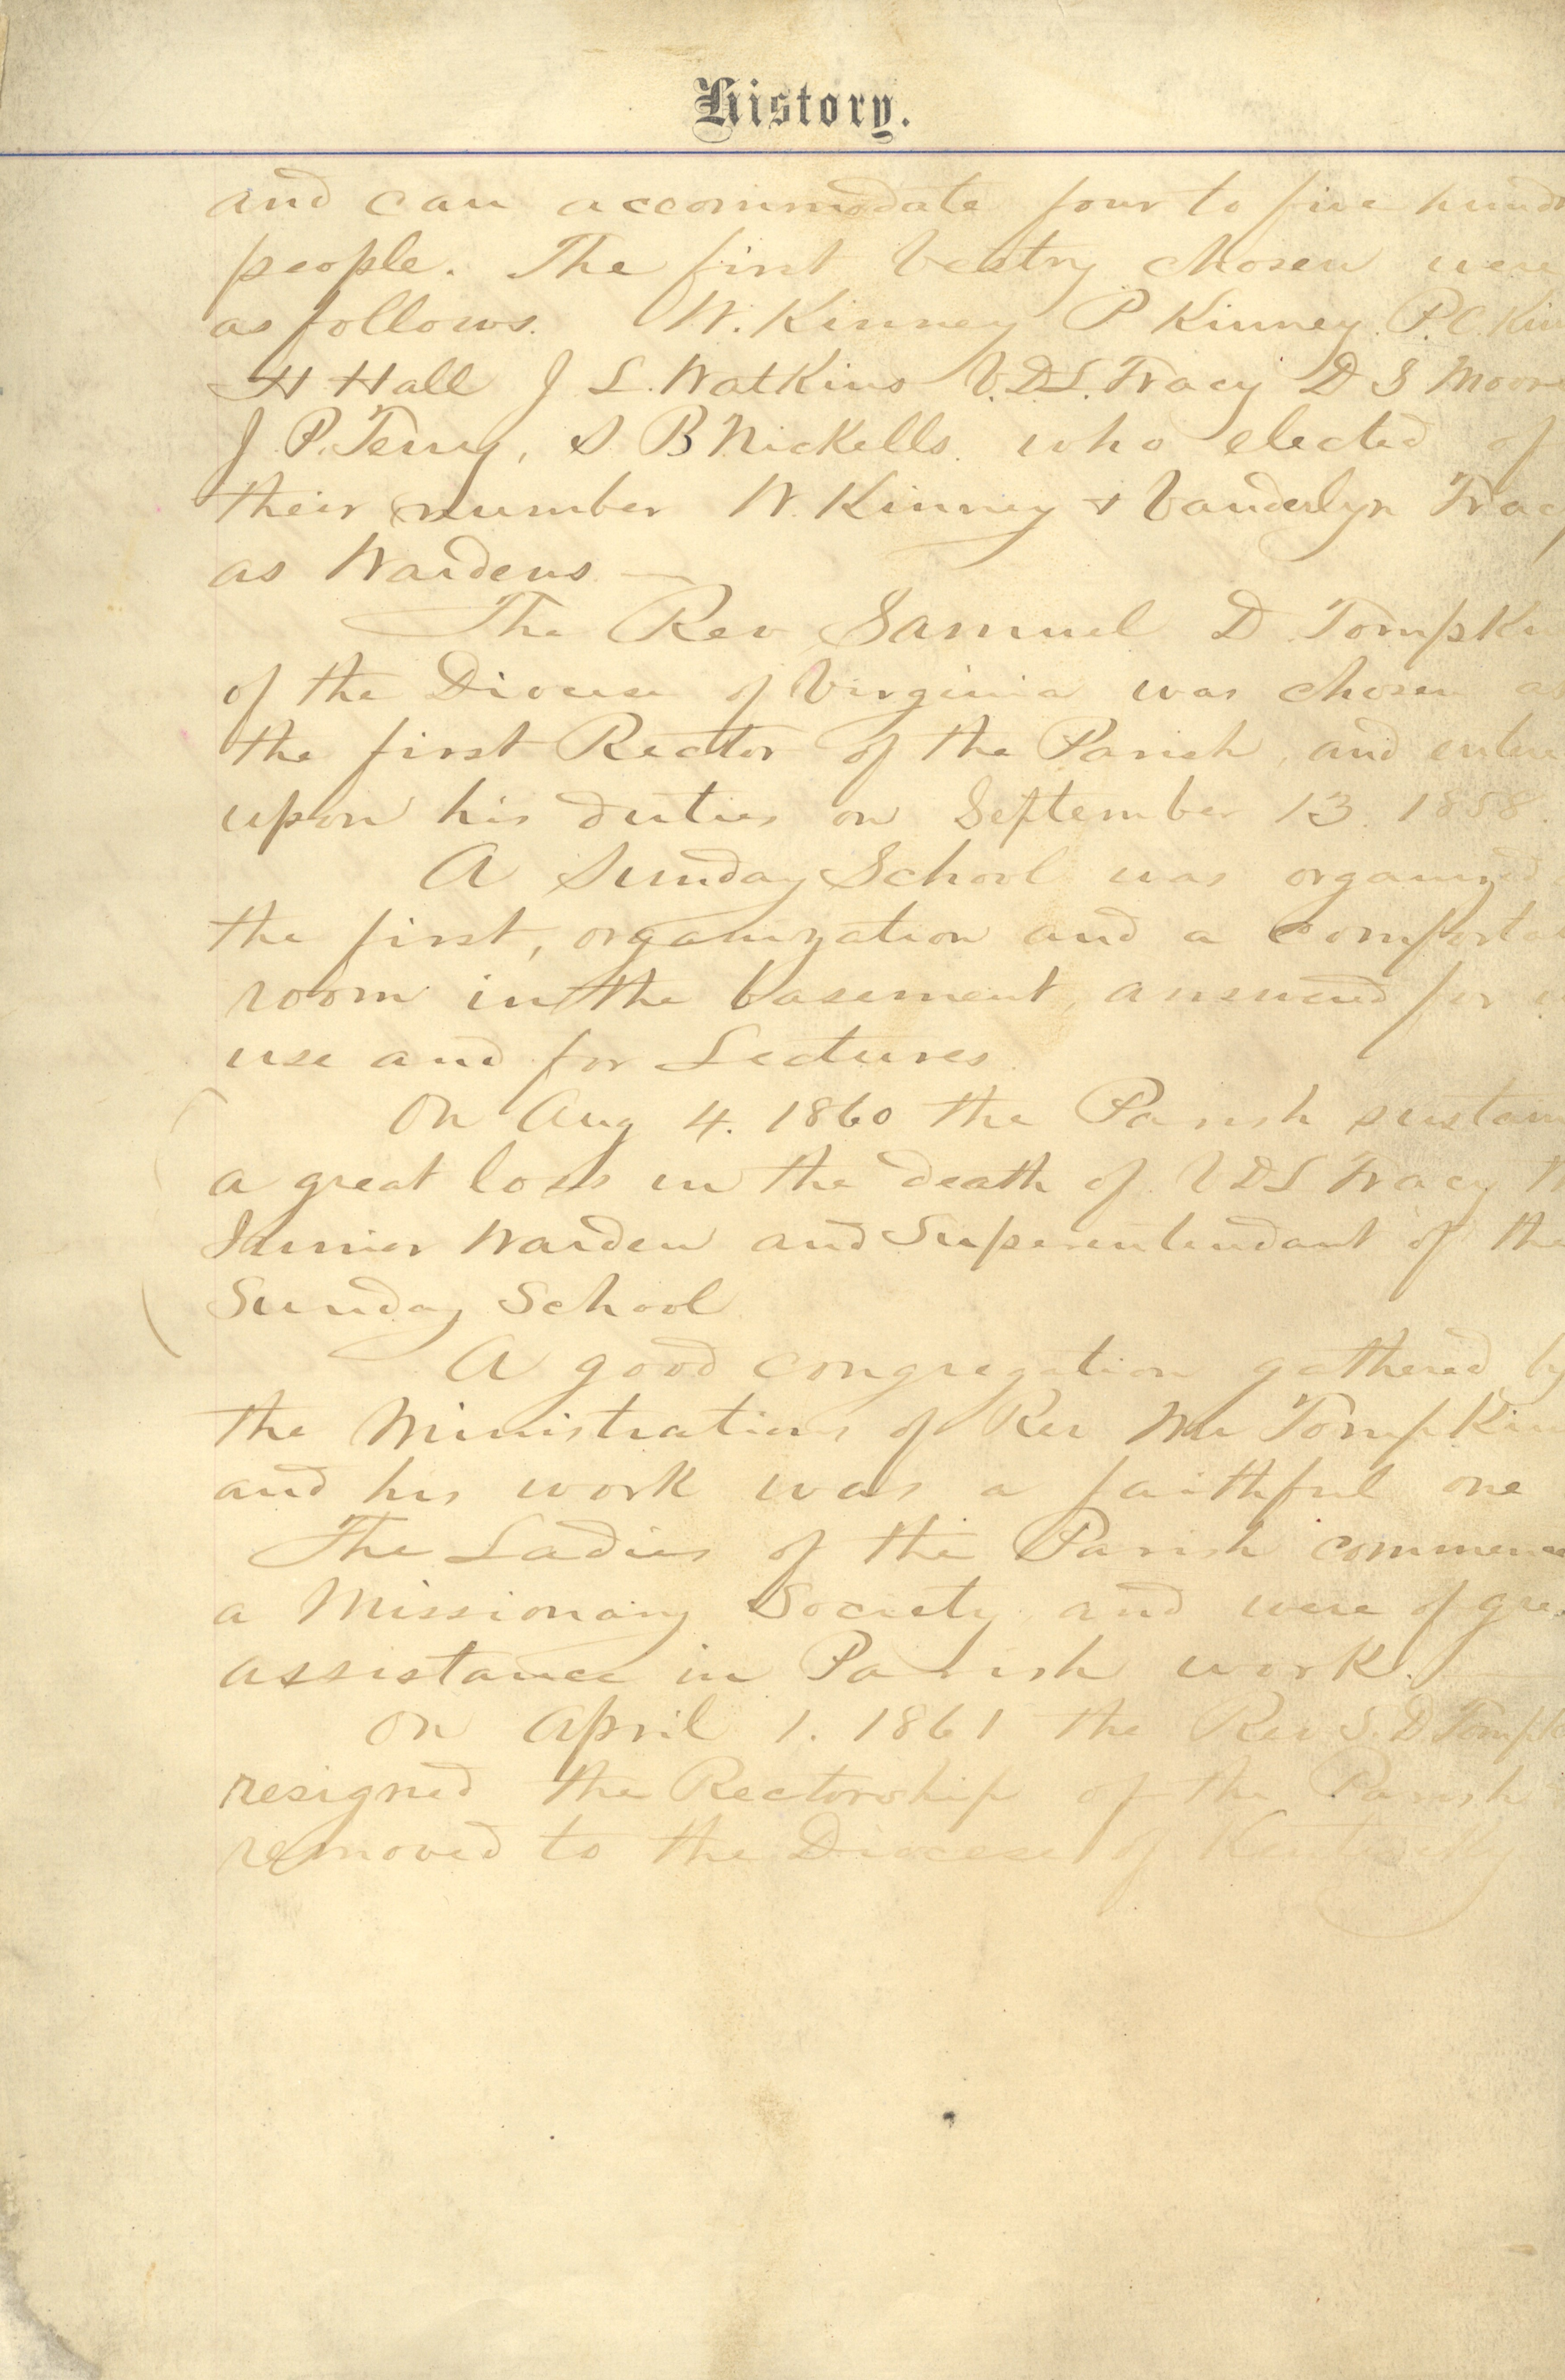 History.
and can accommodate four to five hund
people. The first Vestry chosen were
as follows. W. Kinney P Kinney P.C. Kin
H Hall J L. Watkins V.D.L. Tracy D S Moor
J. P. Terry, S B Nickells. who elected of
their number W. Kinney & Vanderlyn Trac
as Wardens —
The Rev Samuel D Tompkin
of the Diocese of Virginia was chosen as
the first Rector of the Parish, and entere
upon his duties on September 13. 1858.
A Sunday School was organized
the first, organization and a comforta
room in the basement, answered for
use and for Lectures
On Aug 4. 1860 the Parish sustain
a great loss in the death of V D L Tracy th
Junior Warden and Superentendant of the
Sunday School
A good congregation gathered by
the Ministrations of Rev Mr Tompkin
and his work was a faithful one
The Ladies of the Parish commence
a Missionary Society, and were of grea
assistance in Parish work.
On April 1. 1861 the Rev S. D Tompk
resigned the Rectorship of the Parish
removed to the Diocese of Kentucky